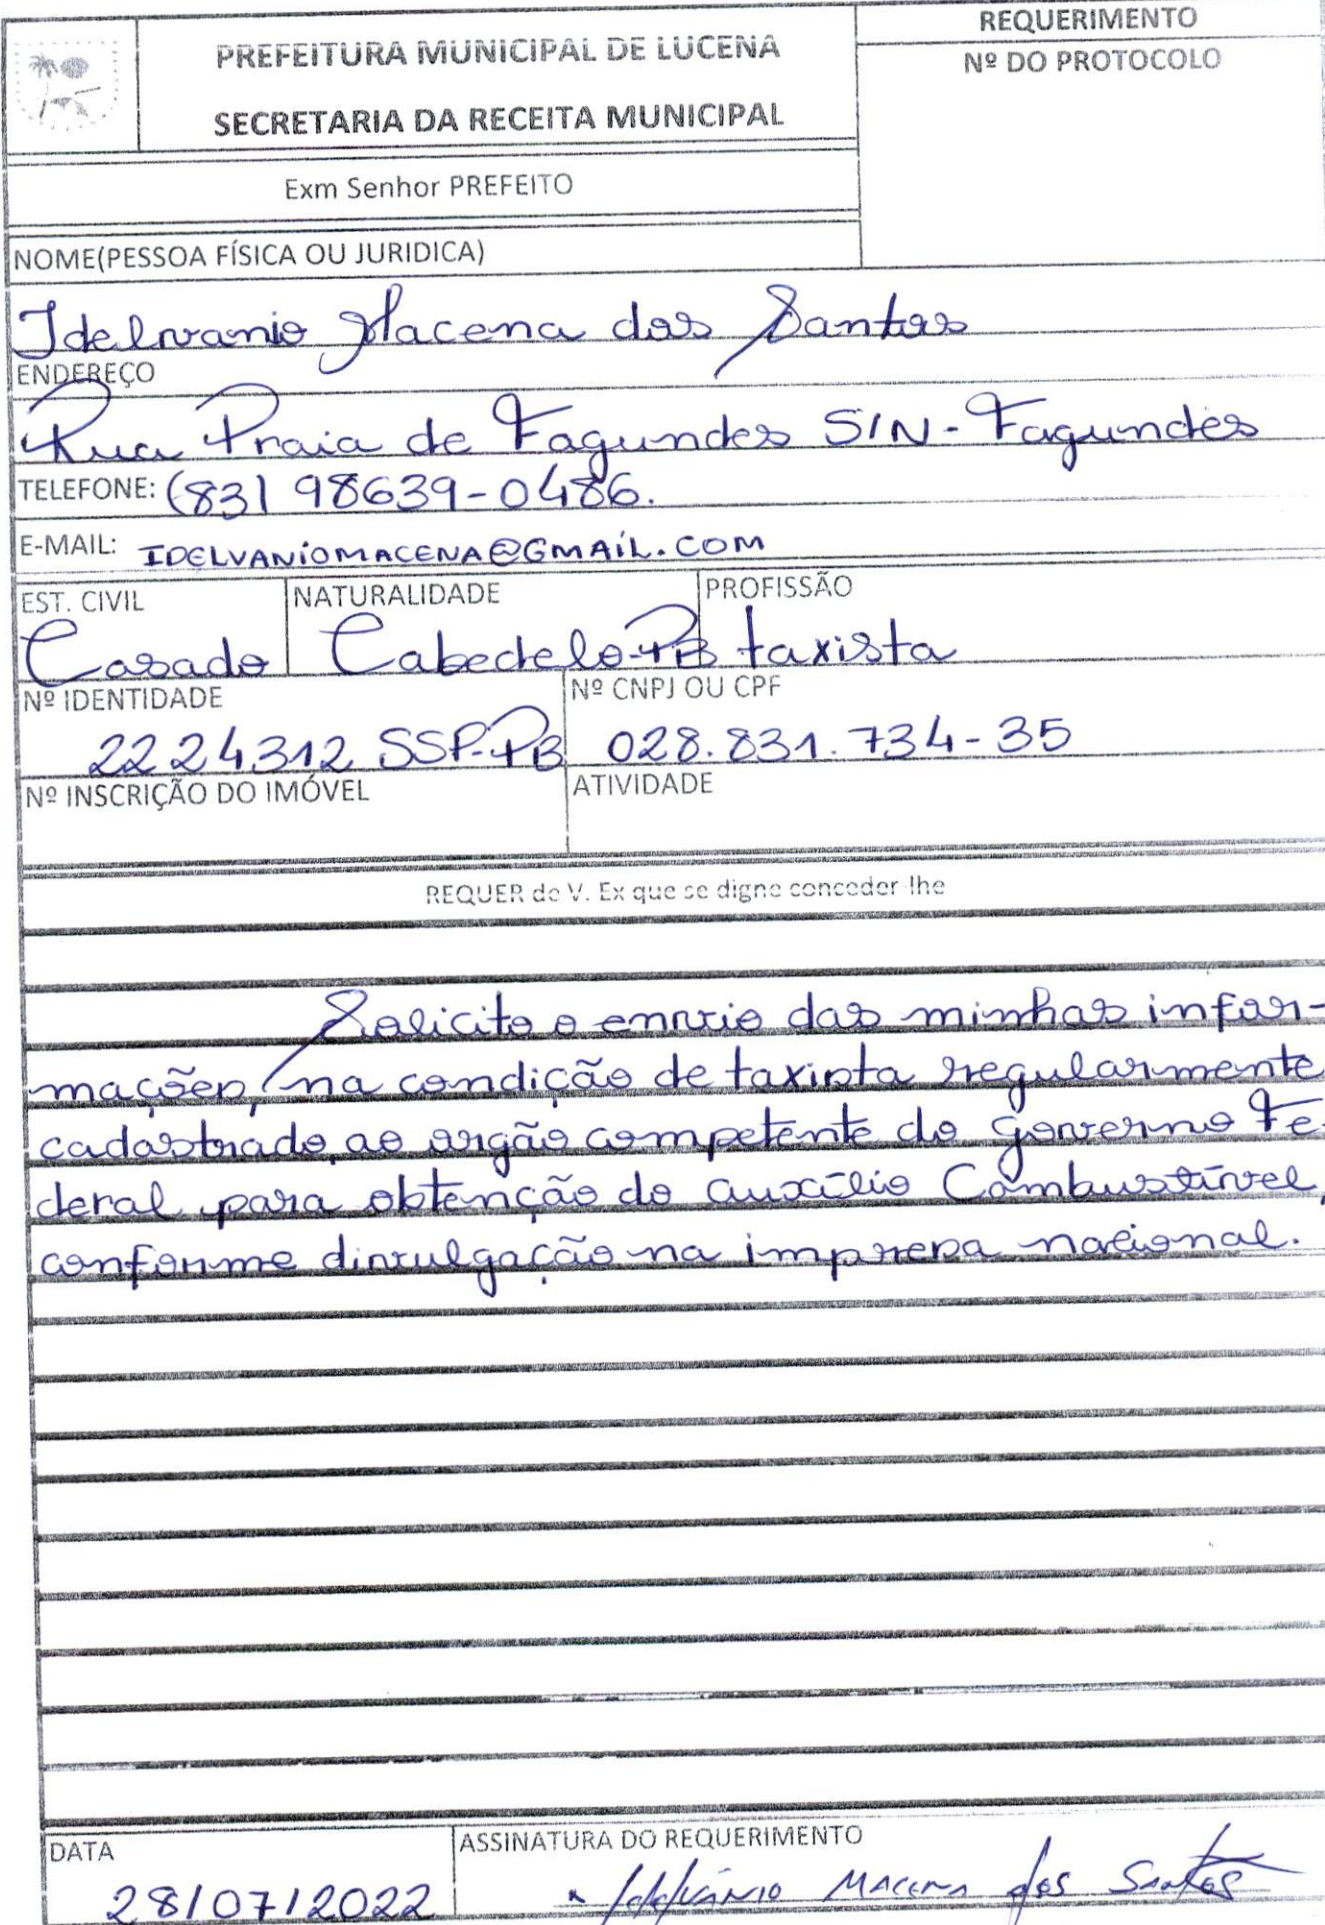 REQUERIMENTO
PREFEITURA MUNICIPAL DE LUCENA
Nº DO PROTOCOLO
SECRETARIA DA RECEITA MUNICIPAL
Exm Senhor PREFEITO
NOME(PESSOA FÍSICA OU JURIDICA)
Idelvanio Macena dos Santos
ENDEREÇO
Rua Praia de Fagundes S/N - Fagundes
TELEFONE: (83) 98639-0486.
E-MAIL: IDELVANIOMACENA@GMAIL.COM
EST. CIVIL NATURALIDADE PROFISSÃO
Casado Cabedelo-PB taxista
Nº IDENTIDADE Nº CNPJ OU CPF
2224312 SSP-PB 028.831.734-35
Nº INSCRIÇÃO DO IMÓVEL ATIVIDADE
REQUER de V. Ex que se digne conceder-lhe
Solicito o envio das minhas infor-
mações, na condição de taxista regularmente
cadastrado, ao orgão competente do Governo Fe-
deral para obtenção do auxílio Combustível,
conforme divulgação na imprensa nacional.
DATA ASSINATURA DO REQUERIMENTO
28/07/2022 x Idelvânio Macena dos Santos